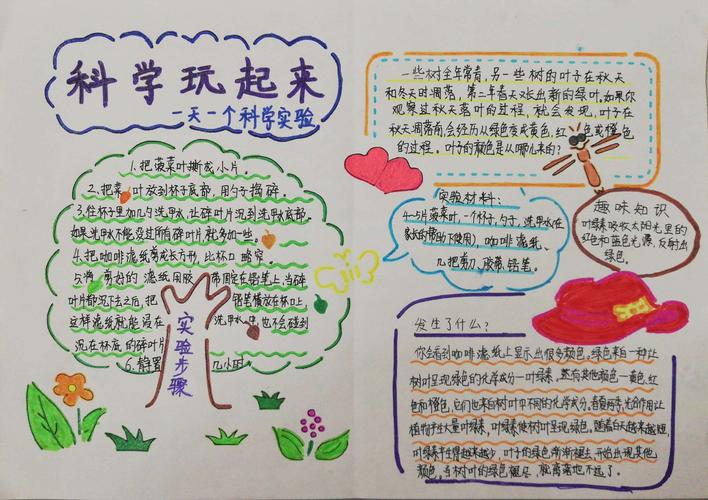 科学玩起来
一天一个科学实验
1.把菠菜叶撕成小片。
2.把菜叶放到杯子底部,用勺子捣碎。
3.往杯子里加几勺洗甲水,让碎叶片沉到洗甲水底部。
如果洗甲水不能没过所有碎叶片就多加一些。
4.把咖啡滤纸剪成长方形,比杯口略窄。
5.将剪好的滤纸用胶带固定在铅笔上,当碎
叶片都沉下去之后,把铅笔横放在杯口上,
这样滤纸就能浸在洗甲水里,也不会碰到
沉在杯底的碎叶片
6.静置几小时
实验步骤
一些树全年常青,另一些树的叶子在秋天
和冬天时凋落,第二年春天又长出新的绿叶,如果你
观察过秋天落叶的过程,就会发现,叶子在
秋天凋落前会经历从绿色变成黄色,红色或橙色
的过程。叶子的颜色是从哪儿来的?
实验材料:
4-5片菠菜叶,一个杯子,勺子,洗甲水(在
家长的帮助下使用),咖啡滤纸、
一把剪刀,胶带,铅笔。
趣味知识
叶绿素吸收太阳光里的
红色和蓝色光谱,反射出
绿色。
发生了什么?
你会看到咖啡滤纸上显示出很多颜色。绿色来自一种让
树叶呈现绿色的化学成分—叶绿素。然而其他颜色—黄色,红
色和橙色,它们也来自树叶中不同的化学成分。春夏两季,光合作用让
植物产生大量叶绿素,叶绿素使树叶呈现绿色。随着白天越来越短,
叶绿素产生得越来越少,叶子的绿色渐渐褪去,开始出现其他
颜色,当树叶的绿色褪尽,就离落地不远了。